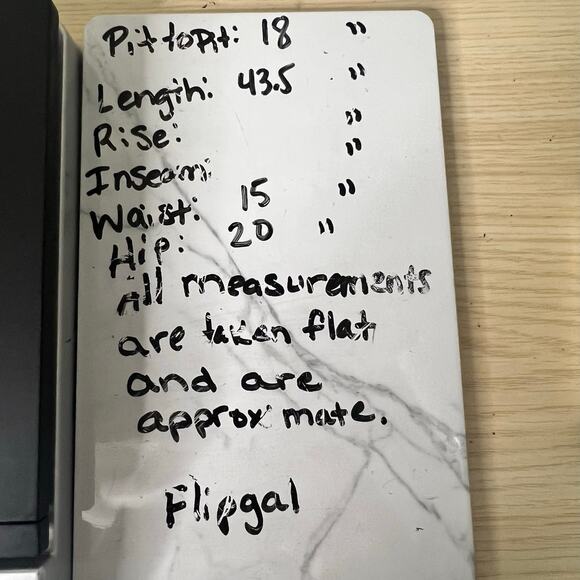 Pit to Pit: 18 "
Length: 43.5 "
Rise: "
Inseam: "
Waist: 15 "
Hip: 20 "
All measurements
are taken flat
and are
approximate.
Flipgal